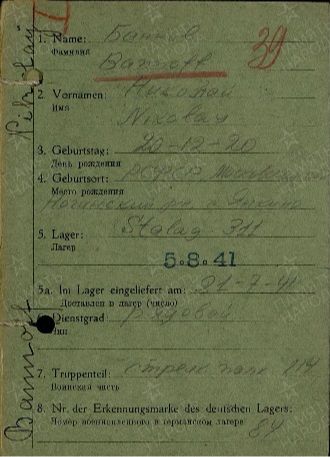 I
39
1. Name: Баннов
Фамилия
Bannoff
2. Vornamen: Николай
Имя
Nikolay
3. Geburtstag: 20-12-20
День рождения
4. Geburtsort: РСФСР
Место рождения
Ногинский рн. с.
5. Lager: Stalag 311
Лагер
5.8.41
5a. Im Lager eingeliefert am: 21-7-41
Доставлен в лагер (число)
Dienstgrad: рядовой
Чин
7. Truppenteil: стрелк. полк
Воинская часть
8. Nr. der Erkennungsmarke des deutschen Lagers:
Номер военнопленного в германском лагере
84
Bannoff